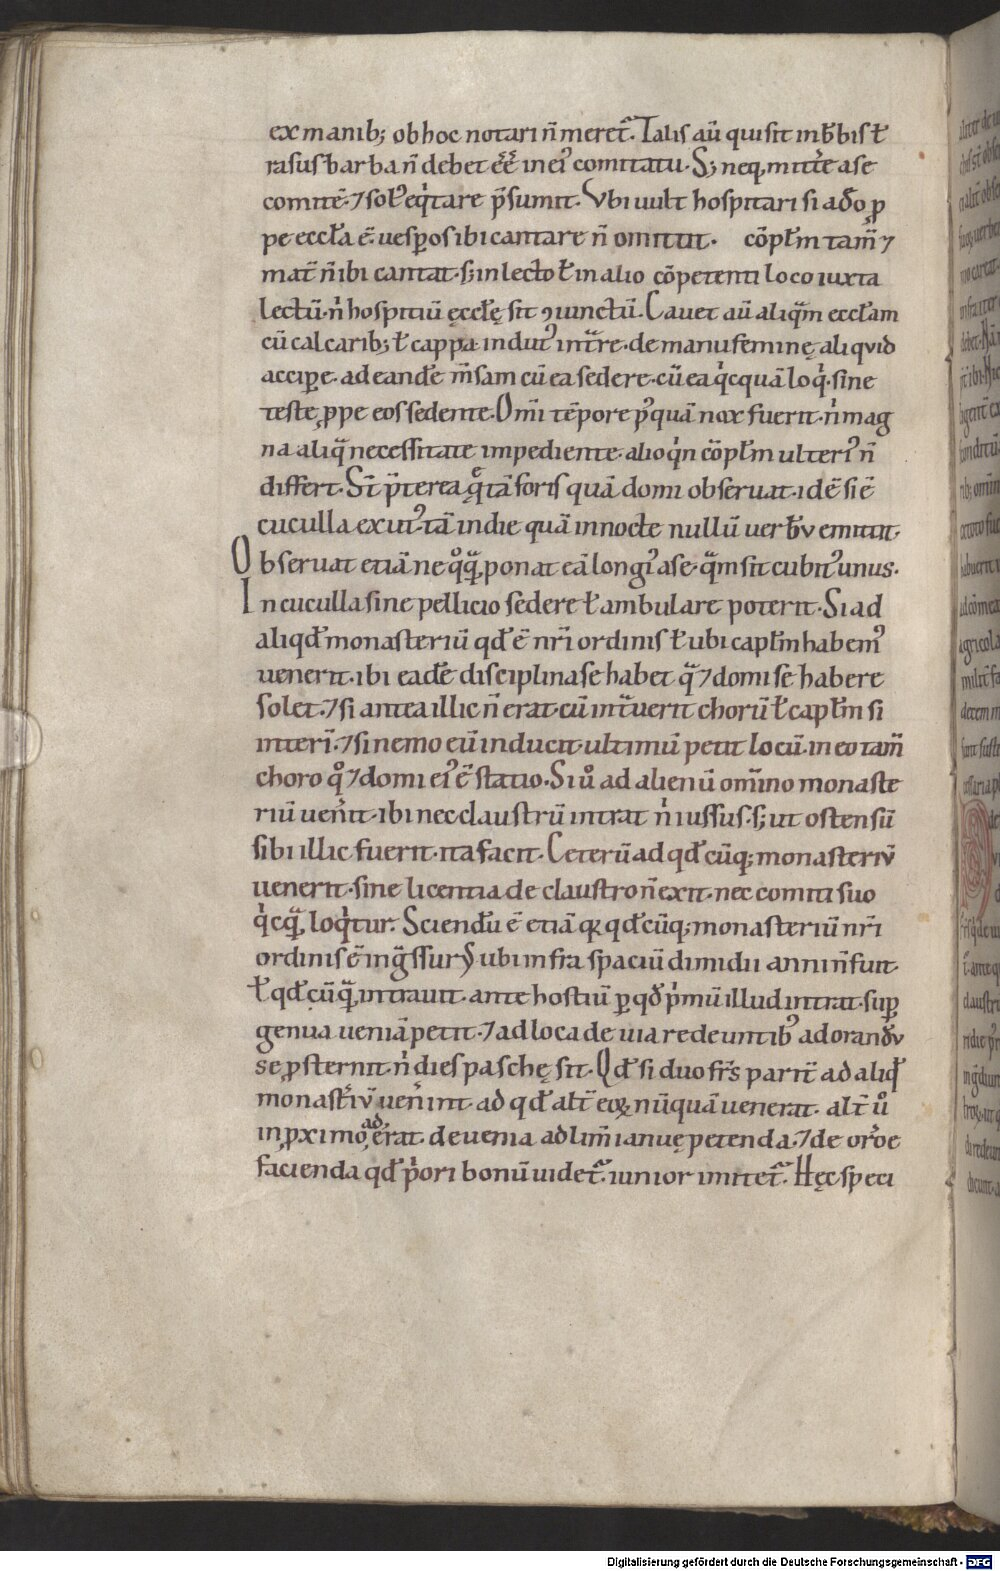 ex manib; ob hoc notari ñ meret᷑. Talis aū qui sit inb̄bis ł
rasus barba ñ debet ēē in ei᷒ comitatu. S; neq; mittˀe a se
comitē. ⁊ sol᷒ eqͥtare p̄sumit. Vbi uult hospitari si adʼo ꝓ
pe eccl̄a ē. uesꝑos ibi cantare ñ omittit. cōpl̄m tam̄ ⁊
mat̄ ñ ibi cantat. s; in lecto ł in alio cōpetenti loco iuxta
lectū. nͥ hospitiū ęccl̄ę sit ꝯiunctū. Cauet aū aliqᷓm eccl̄am
cū calcarib; ł cappa indut᷒ intᷓre. de manu feminę aliquid
acciꝑe. ad eandē m̄sam cū ea sedere. cū ea qͥcquā loqͥ. sine
teste ꝓpe eos sedente. Om̄i tēpore p᷒quā nox fuerit. nͥ mag
na aliqᷓ necessitate impediente. alioqͥn cōpl̄m ulteri᷒ ñ
differt. St̄ p̄terea q̨ͦ tā foris quā domi obseruat. id ē si ē
cuculla exut᷒. tā in die quā in nocte nullū uerbū emittit.
Obseruat etiā ne qͦqᷓ ponat eā longi᷒ a se. qᷓm sit cubit᷒ unus.
In cuculla sine pellicio sedere ł ambulare poterit. Si ad
aliqd̄ monasteriū qd̄ ē nr̄i ordinis ł ubi capl̄m habem᷒
uenerit. ibi eadē disciplina se habet qᷓ ⁊ domi se habere
solet. ⁊ si antea illic ñ erat. cū intᷓuerit chorū ł capl̄m si
interī. ⁊ si nemo eū inducit. ultimū petit locū. in eo tam̄
choro qͦ ⁊ domi ei᷒ ē statio. Si uͦ ad alienū om̄ino monaste
riū uen̓it. ibi nec claustrū intrat nͥ iussus. s; ut ostensū
sibi illic fuerit. ita facit. Ceterū ad qd̄cūq; monasteriū
uenerit. sine licentia de claustro ñ exit. nec comiti suo
qͥcqᷓ loqͥtur. Sciendū ē etiā qꝛ qd̄cūq; monasteriū nr̄i
ordinis ē ingᷓssur᷒. ubi infra spaciū dimidii anni ñ fuit.
ł qd̄ cūqᷓ intrauit. ante hostiū ꝑ qd̄ pͥmū illud intrat. suꝑ
genua ueniā petit. ⁊ ad loca de uia redeuntib᷒ ad orandū
se ꝓsternit. nͥ dies paschę sit. Qd̄ si duo fr̄s parit̄ ad aliqd̄
monast̓iū uen̓int. ad qd̄ alt̄ eoꝝ nūquā uenerat. alt̄ uͦ
in ꝓximo ad erat. de uenia ad lim̄ ianuę petenda. ⁊ de or̄oe
facienda qd̄ pͥori bonū uidet᷑. iunior imitet᷑. Hęc speci
Digitalisierung gefördert durch die Deutsche Forschungsgemeinschaft - DFG